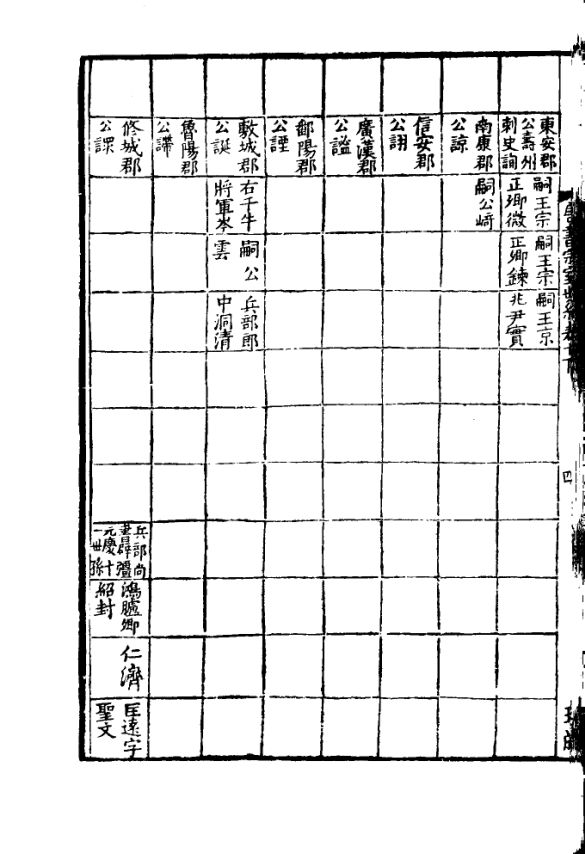 東安郡
公壽州
刺史詢
嗣王宗
正卿微
嗣王宗
正卿鍊
嗣王京
兆尹實
南康郡
公諒
嗣公﨑
信安郡
公詡
廣漢郡
公謐
鄱陽郡
公諲
敷城郡
公誕
右千牛
將軍岑
嗣公
雲
兵部郎
中洞清
魯陽郡
公諦
修城郡
公課
兵部尚
元慶十
鴻臚卿
紹封
仁濟
匡遠字
聖文
四